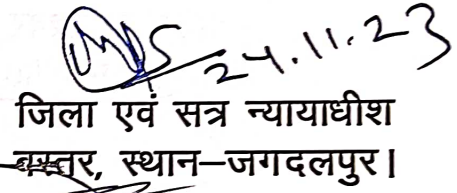 24.11.23
जिला एवं सत्र न्यायाधीश
बस्तर, स्थान–जगदलपुर।